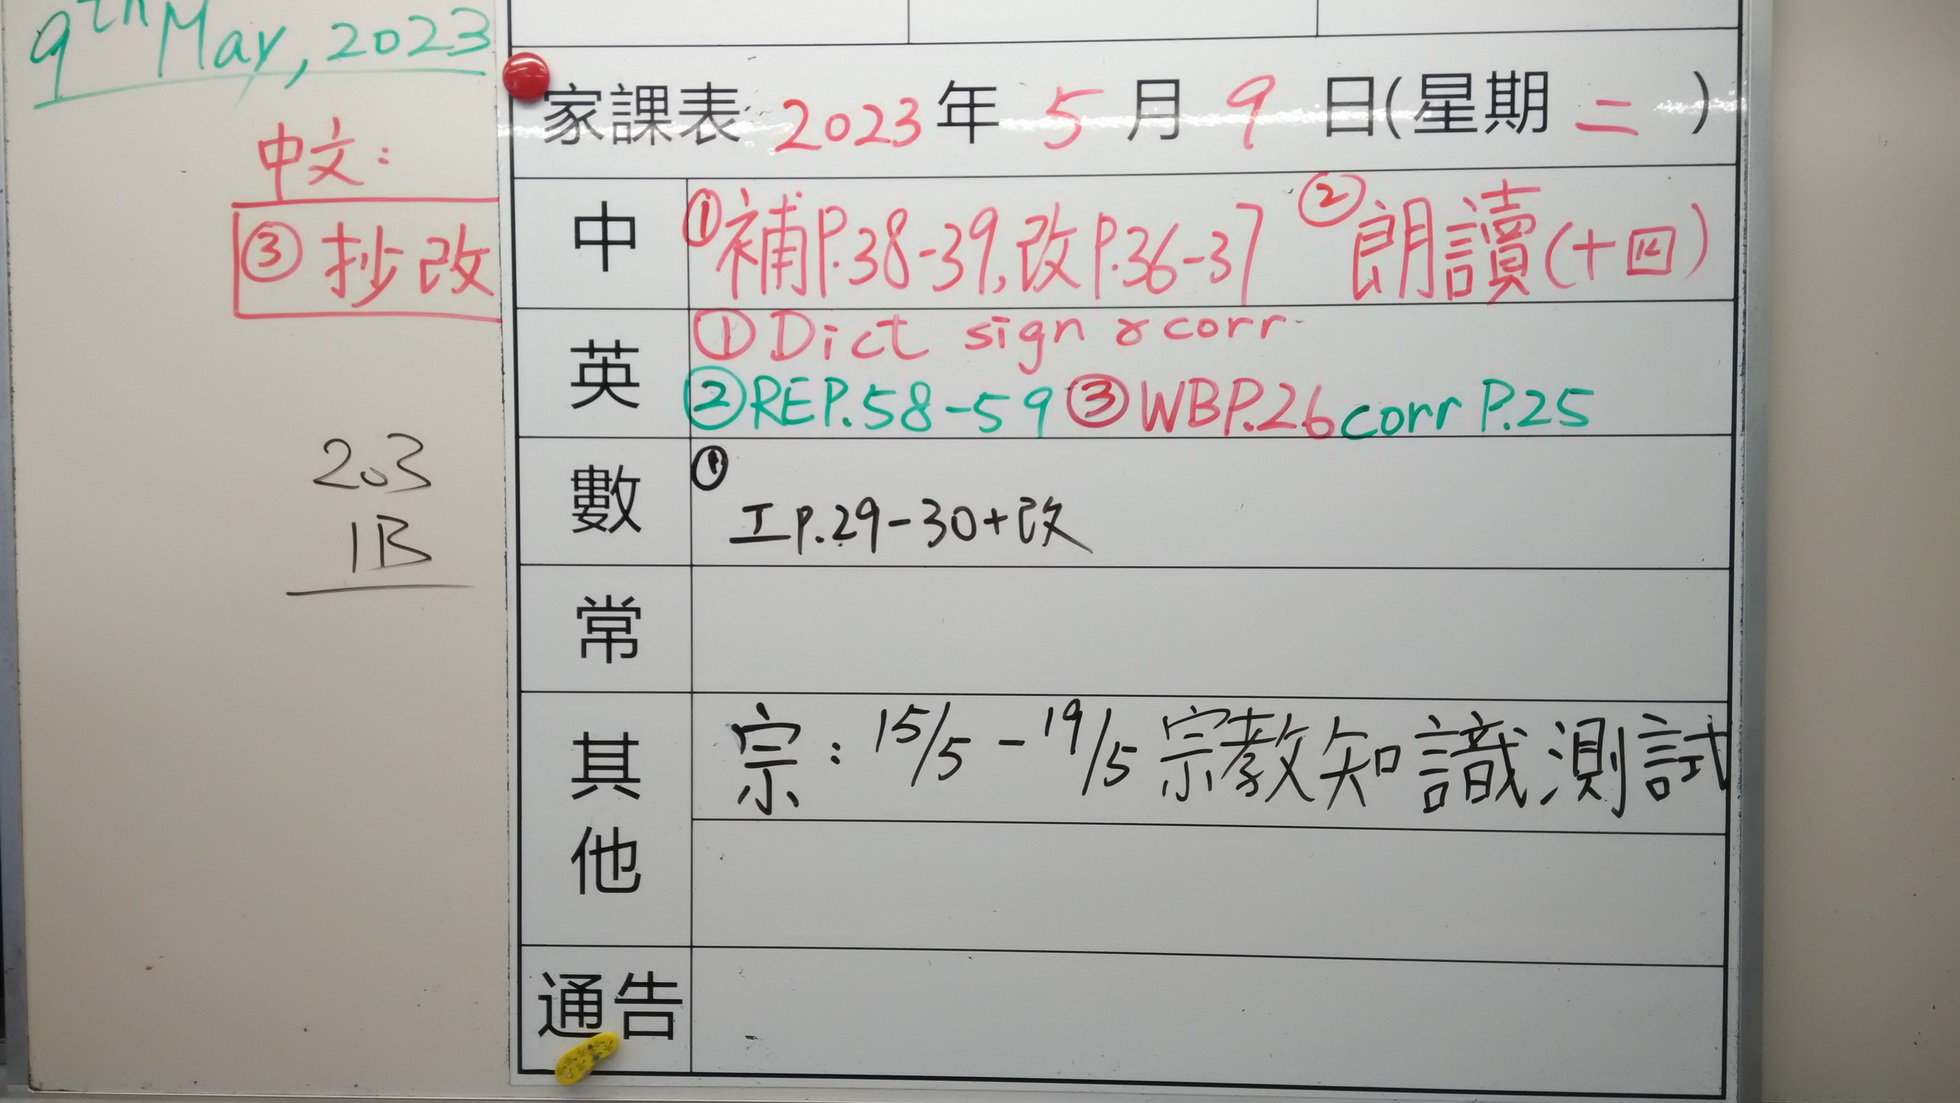 9th May, 2023
中文：
③ 抄改
203
1B
家課表 2023 年 5 月 9 日(星期 二 )
中 ①補P.38-39,改P.36-37 ②朗讀(十四)
英 ①Dict sign & corr.
②REP.58-59 ③WBP.26 corr P.25
數 ①
工p.29-30+改
常
其他 宗：15/5-19/5宗教知識測試
通告